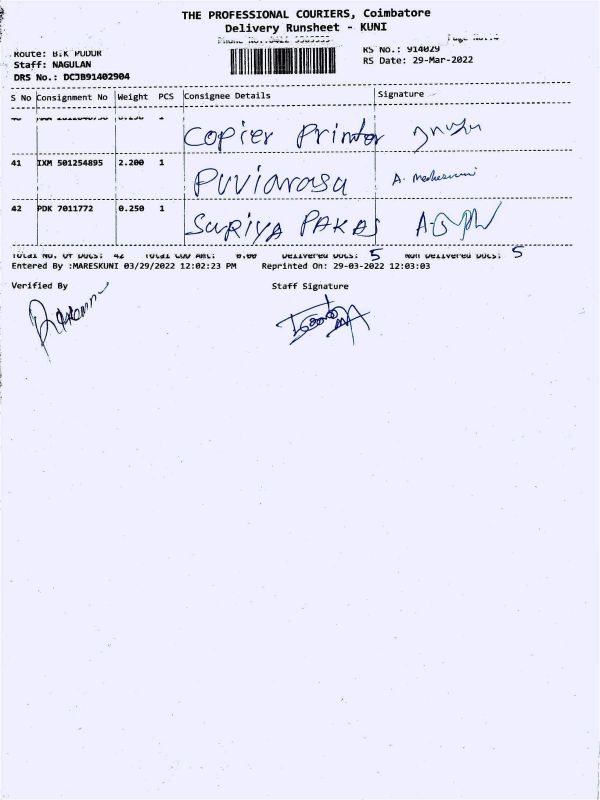 THE PROFESSIONAL COURIERS, Coimbatore
Delivery Runsheet - KUNI
Route: B.K PUDUR
RS No.: 914029
Staff: NAGULAN
RS Date: 29-Mar-2022
DRS No.: DCJB91402904
S No Consignment No Weight PCS Consignee Details Signature
Copier Printer
41 IXM 501254895 2.200 1 Puviarasu A.
42 PDK 7011772 0.250 1 SURIYA PAKAS
Total No. Of Docs: 42 Total COD Amt: 0.00 Delivered Docs: 5 Non Delivered Docs: 5
Entered By :MARESKUNI 03/29/2022 12:02:23 PM Reprinted On: 29-03-2022 12:03:03
Verified By Staff Signature